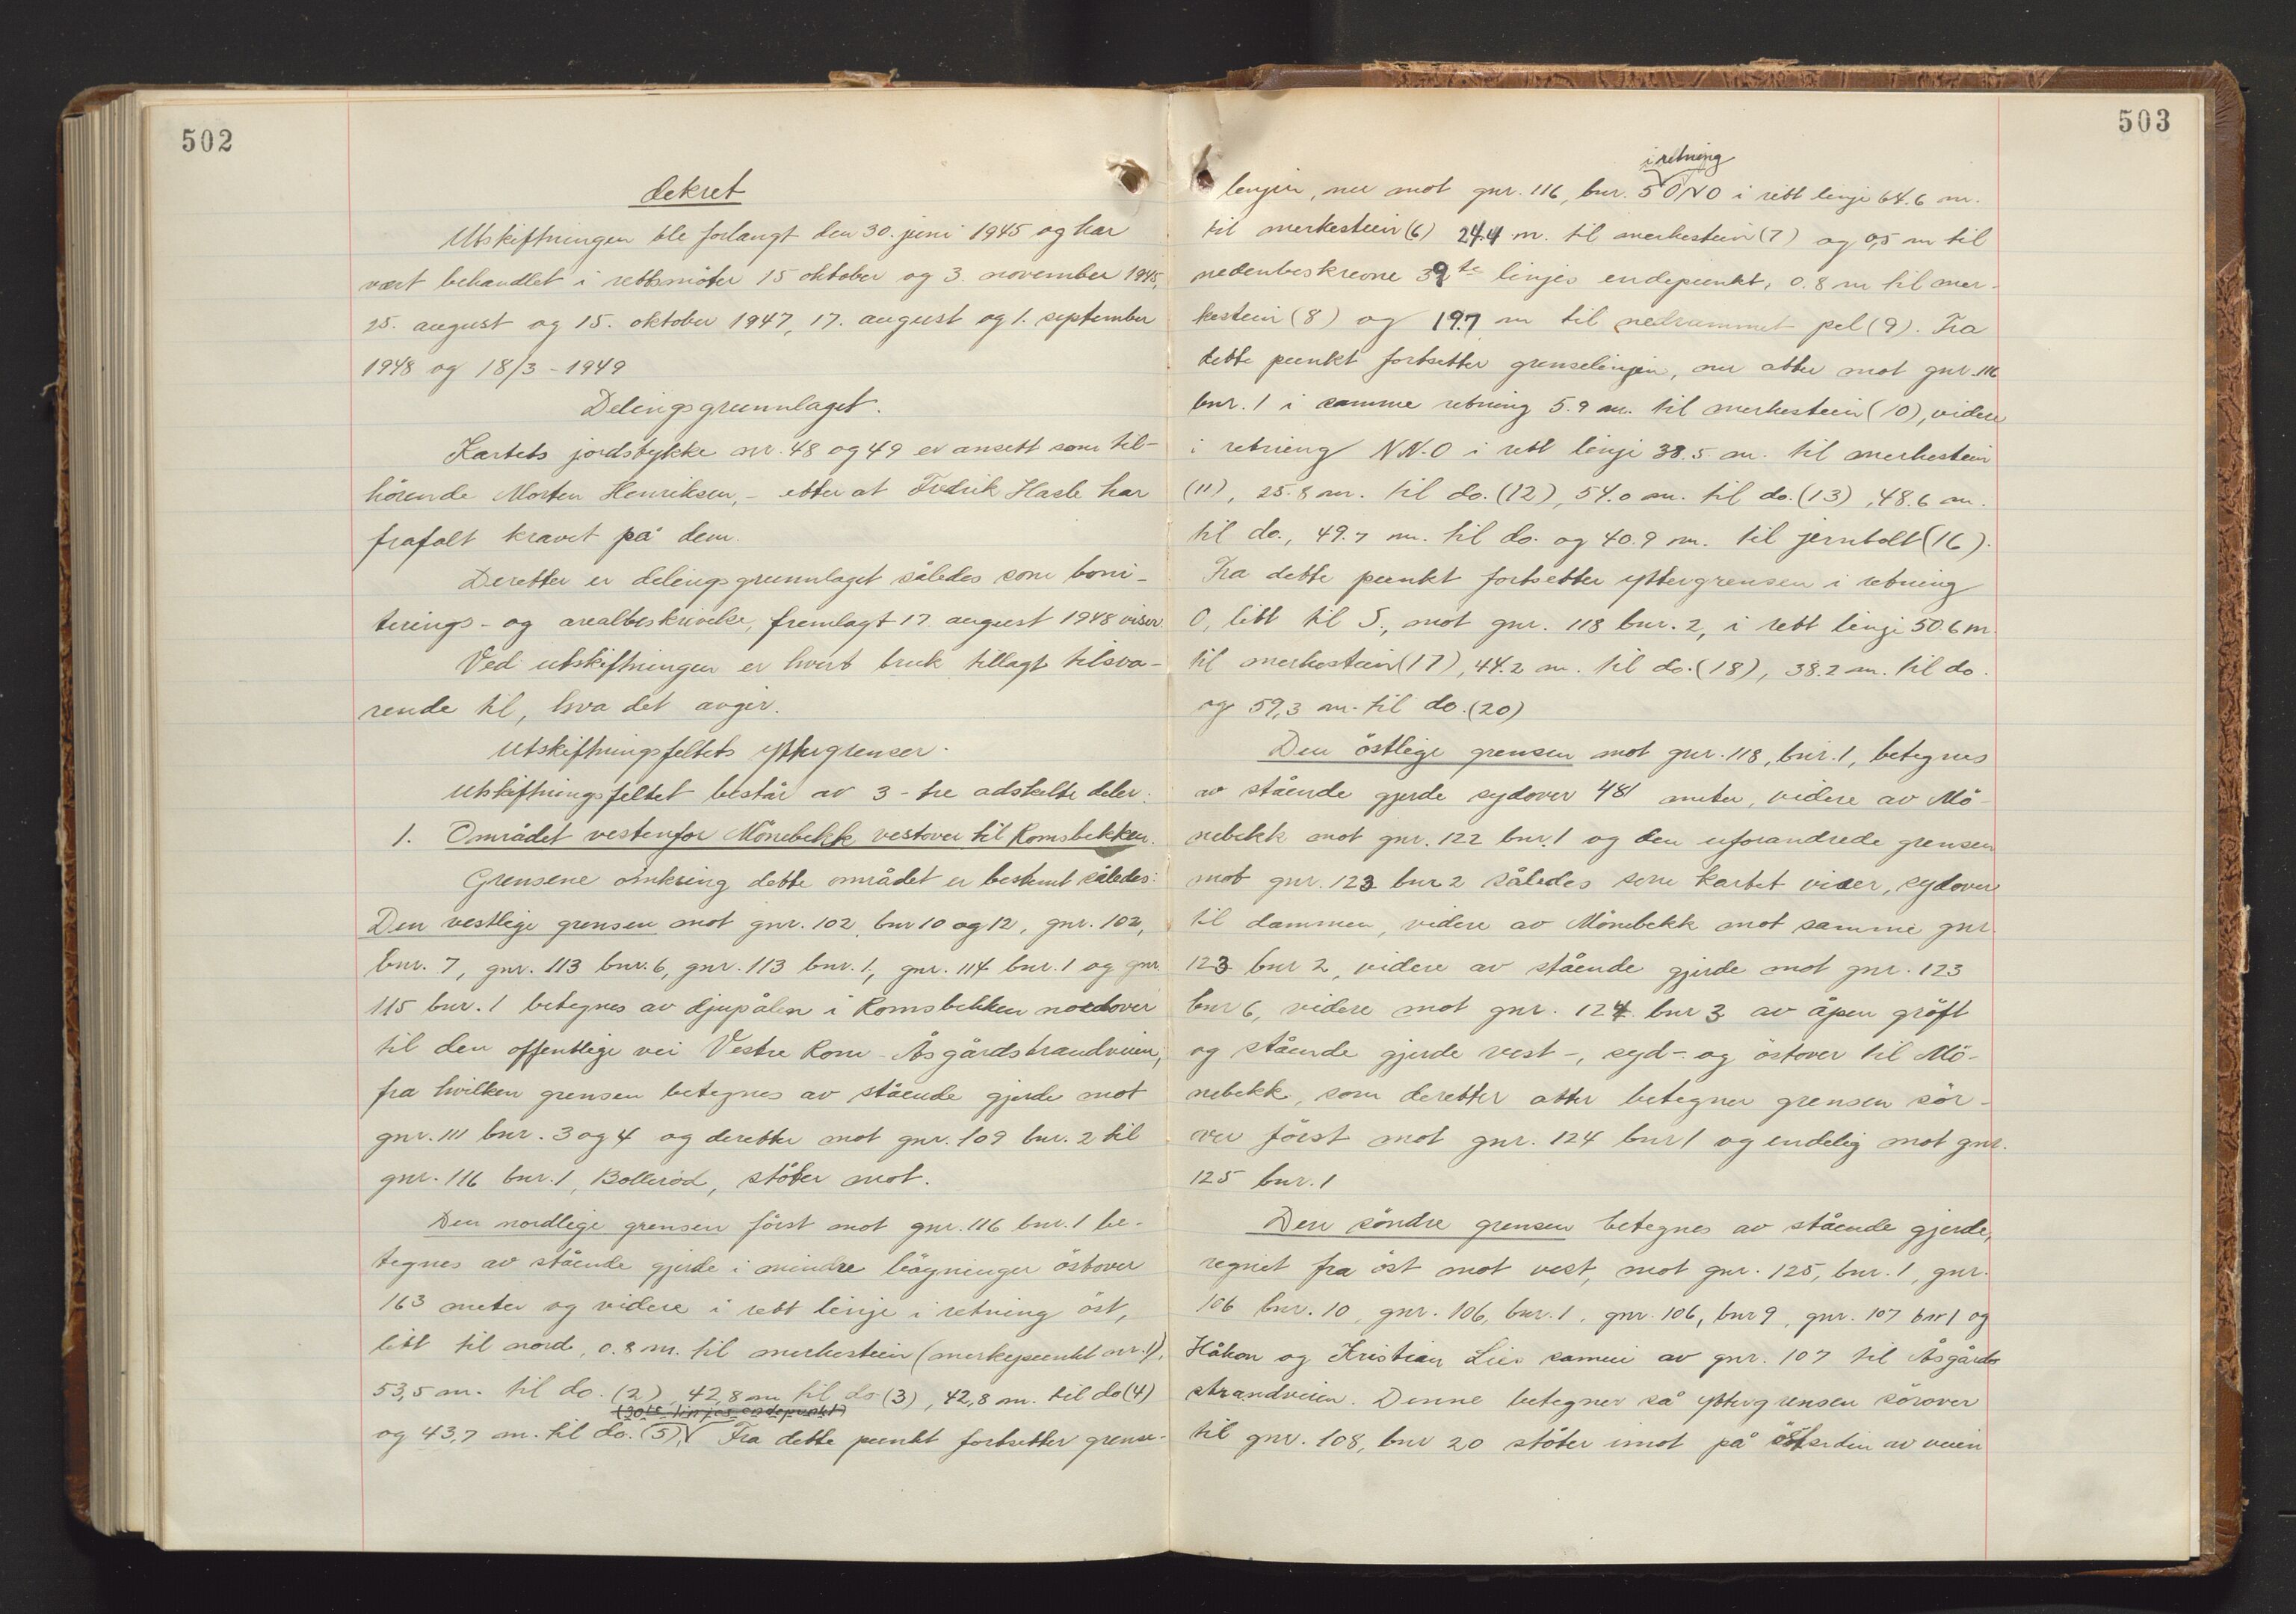 502
dekret
Utskiftningen ble forlangt den 30. juni 1945 og har
vært behandlet i rettsmöter 15 oktober og 3. november 1945,
25. august og 15. oktober 1947, 17. august og 1. september
1948 og 18/3 - 1949
Delingsgrunnlaget.
Kartets jordstykke nr. 48 og 49 er ansett som til-
hörende Morten Henriksen, - etter at Fredrik Hasle har
frafalt kravet på dem.
Deretter er delingsgrunnlaget således som boni-
terings- og arealbeskrivelse, fremlagt 17. august 1948 viser
Ved utskiftningen er hvert bruk tillagt tilsva-
rende til, hva det avgir.
Utskiftningsfeltets yttergrenser.
Utskiftningsfeltet består av 3 - tre adskelte deler:
1. Området vestenfor Mönebekk vestover til Romsbekken.
Grensene omkring dette området er bestemt således:
Den vestlige grensen mot gnr. 102, bnr 10 og 12, gnr. 102,
bnr. 7, gnr. 113 bnr. 6, gnr. 113 bnr. 1, gnr. 114 bnr. 1 og gnr.
115 bnr. 1 betegnes av djupålen i Romsbekken nordover
til den offentlige vei Vestre Rom - Åsgårdstrandveien,
fra hvilken grensen betegnes av stående gjerde mot
gnr. 111 bnr. 3 og 4 og deretter mot gnr. 109 bnr. 2 til
gnr. 116 bnr. 1, Bolleröd, stöter mot.
Den nordlige grensen först mot gnr. 116 bnr. 1 be-
tegnes av stående gjerde i mindre böyninger östover
163 meter og videre i rett linje i retning öst,
litt til nord, 0.8 m. til merkestein (merkepunkt nr. 1),
53,5 m. til do. (2), 42,8 m til do (3), 42,8 m. til do (4)
(30te linjes endepunkt)
og 43,7 m. til do. (5), Fra dette punkt fortsetter grense-
503
i retning
lenjen, nu mot gnr. 116, bnr. 5 ONO i rett linje 64.6 m.
til merkestein (6) 24.4 m. til merkestein (7) og 0,5 m til
nedenbeskrevne 32te linjes endepunkt, 0.8 m til mer-
kestein (8) og 19.7 m til nedrammet pel (9). Fra
dette punkt fortsetter grenselinjen, nu atter mot gnr. 116
bnr. 1 i samme retning 5.9 m. til merkestein (10), videre
i retning NN.O i rett linje 38.5 m. til merkestein
(11), 25.8 m. til do. (12), 54.0 m. til do. (13), 48.6 m.
til do., 49.7 m. til do. og 40.9 m. til jernbolt (16).
Fra dette punkt fortsetter yttergrensen i retning
O, litt til S., mot gnr. 118 bnr. 2, i rett linje 50.6 m.
til merkestein (17), 44.2 m. til do. (18), 38.2 m. til do.
og 59,3 m. til do. (20)
Den östlige grensen mot gnr. 118, bnr. 1, betegnes
av stående gjerde sydover 481 meter, videre av Mö-
nebekk mot gnr. 122 bnr. 1 og den uforandrede grensen
mot gnr. 123 bnr 2 således som kartet viser, sydover
til dammen, videre av Mönebekk mot samme gnr.
123 bnr 2, videre av stående gjerde mot gnr. 123
bnr 6, videre mot gnr. 124 bnr 3 av åpen gröft
og stående gjerde vest-, syd- og östover til Mö-
nebekk, som deretter atter betegner grensen sör-
ver först mot gnr. 124 bnr 1 og endelig mot gnr.
125 bnr. 1
Den söndre grensen betegnes av stående gjerde,
regnet fra öst mot vest, mot gnr. 125, bnr. 1, gnr.
106 bnr. 10, gnr. 106, bnr. 1, gnr. 106, bnr 9, gnr. 107 bnr 1 og
Håkon og Kristian Lies sameie av gnr. 107 til Åsgårds
strandveien. Denne betegner så yttergrensen sörover
til gnr. 108, bnr 20 stöter imot på östsiden av veien